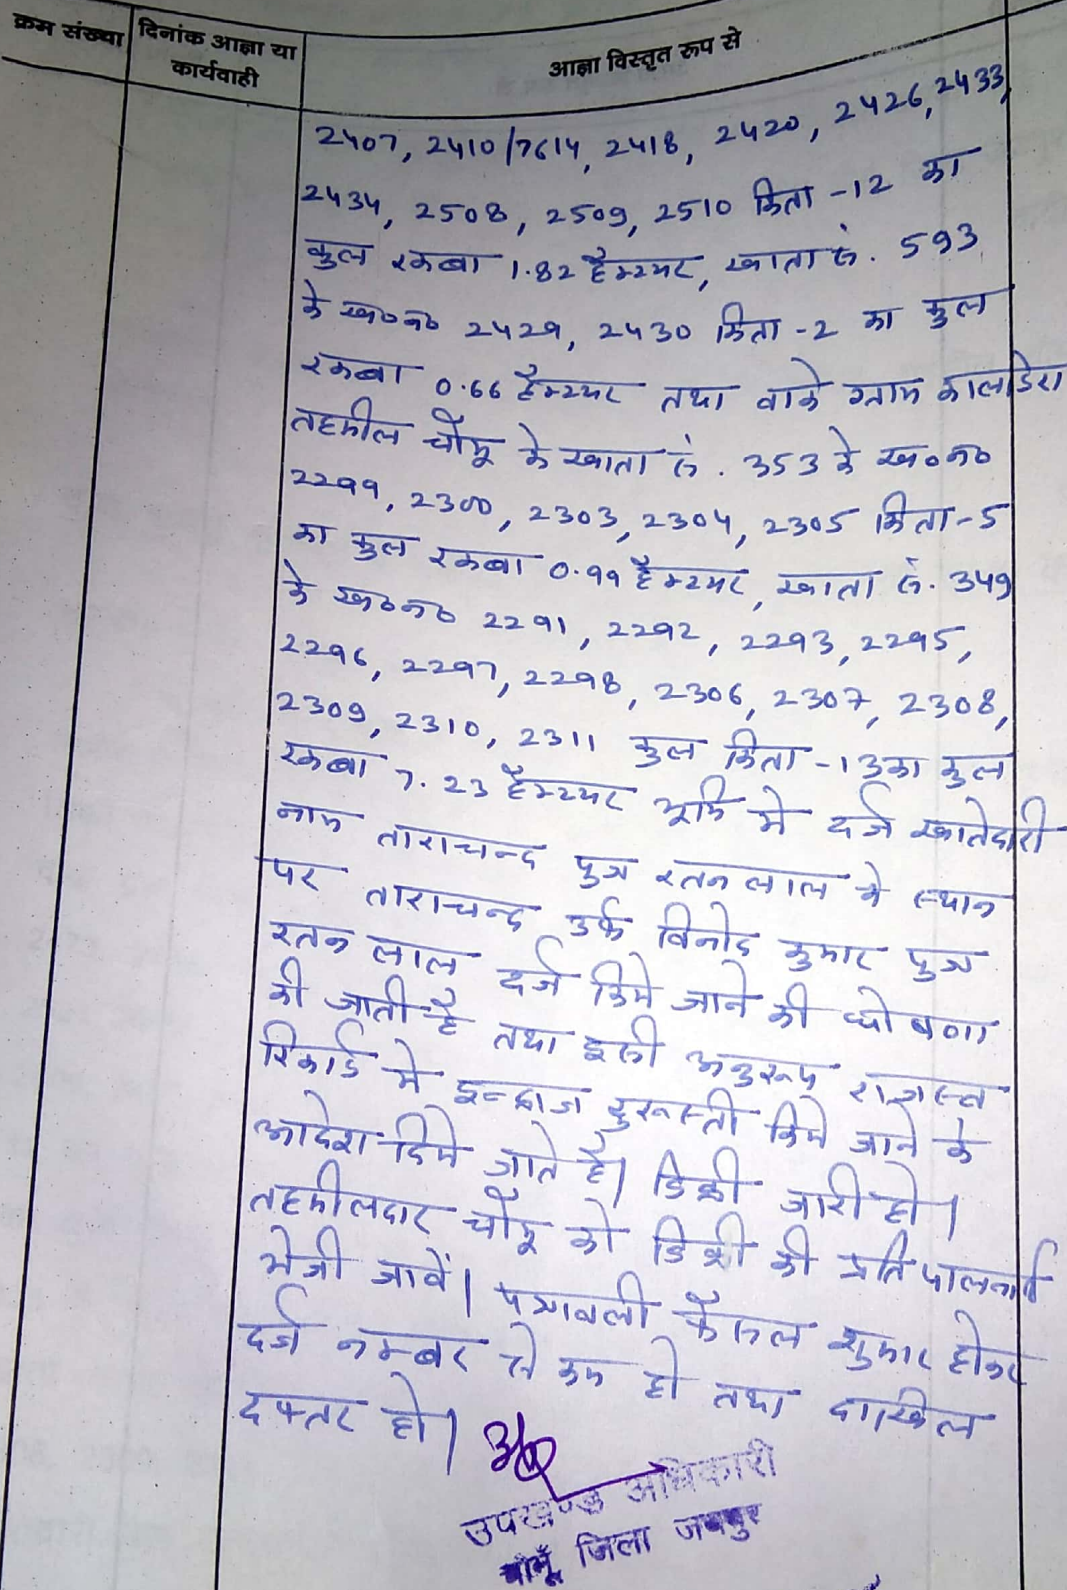 क्रम संख्या दिनांक आज्ञा या कार्यवाही आज्ञा विस्तृत रूप से
2407, 2410/7614, 2418, 2420, 2426, 2433,
2434, 2508, 2509, 2510 किता -12 का
कुल रकबा 1.82 हैक्टयर, खाता सं. 593
के ख०न० 2429, 2430 किता -2 का कुल
रकबा 0.66 हैक्टयर तथा वाके ग्राम कालाडेरा
तहसील चौमू के खाता सं. 353 के ख०न०
2299, 2300, 2303, 2304, 2305 किता-5
का कुल रकबा 0.99 हैक्टयर, खाता सं. 349
के ख०न० 2291, 2292, 2293, 2295,
2296, 2297, 2298, 2306, 2307, 2308,
2309, 2310, 2311 कुल किता -13 का कुल
रकबा 7.23 हैक्टयर भूमि में दर्ज खातेदारी
नाम ताराचन्द पुत्र रतन लाल के स्थान
पर ताराचन्द उर्फ विनोद कुमार पुत्र
रतन लाल दर्ज किये जाने की घोषणा
की जाती है तथा इसी अनुरूप राजस्व
रिकार्ड में इन्द्राज दुरूस्ती किये जाने के
आदेश दिये जाते है। डिक्री जारी हो।
तहसीलदार चौमू को डिक्री की प्रति पालनार्थ
भेजी जावें। पत्रावली फैसल शुमार होकर
दर्ज नम्बर से कम हो तथा दाखिल
दफ्तर हो।
उपखण्ड अधिकारी
चौमूँ, जिला जयपुर